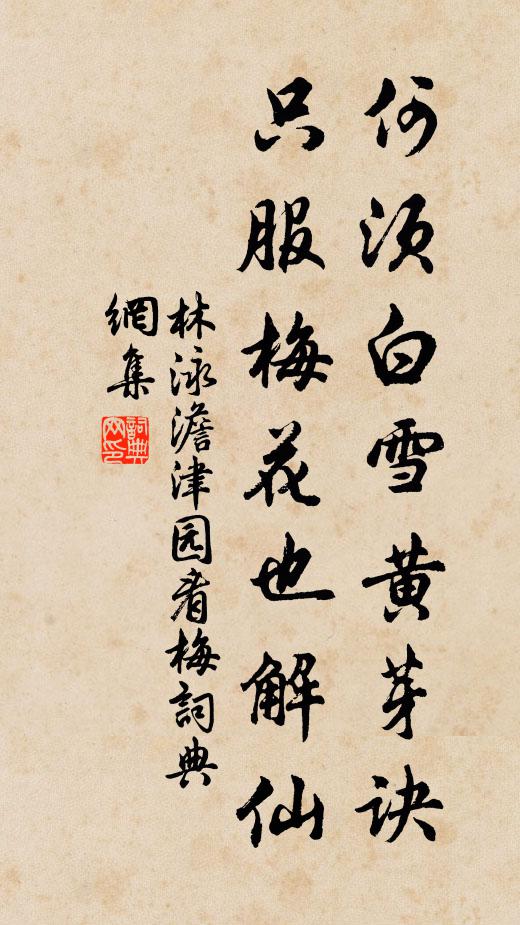 何须白雪黄芽诀
只服梅花也解仙
林泳澹津园看梅詞典
網集
詞典
网印